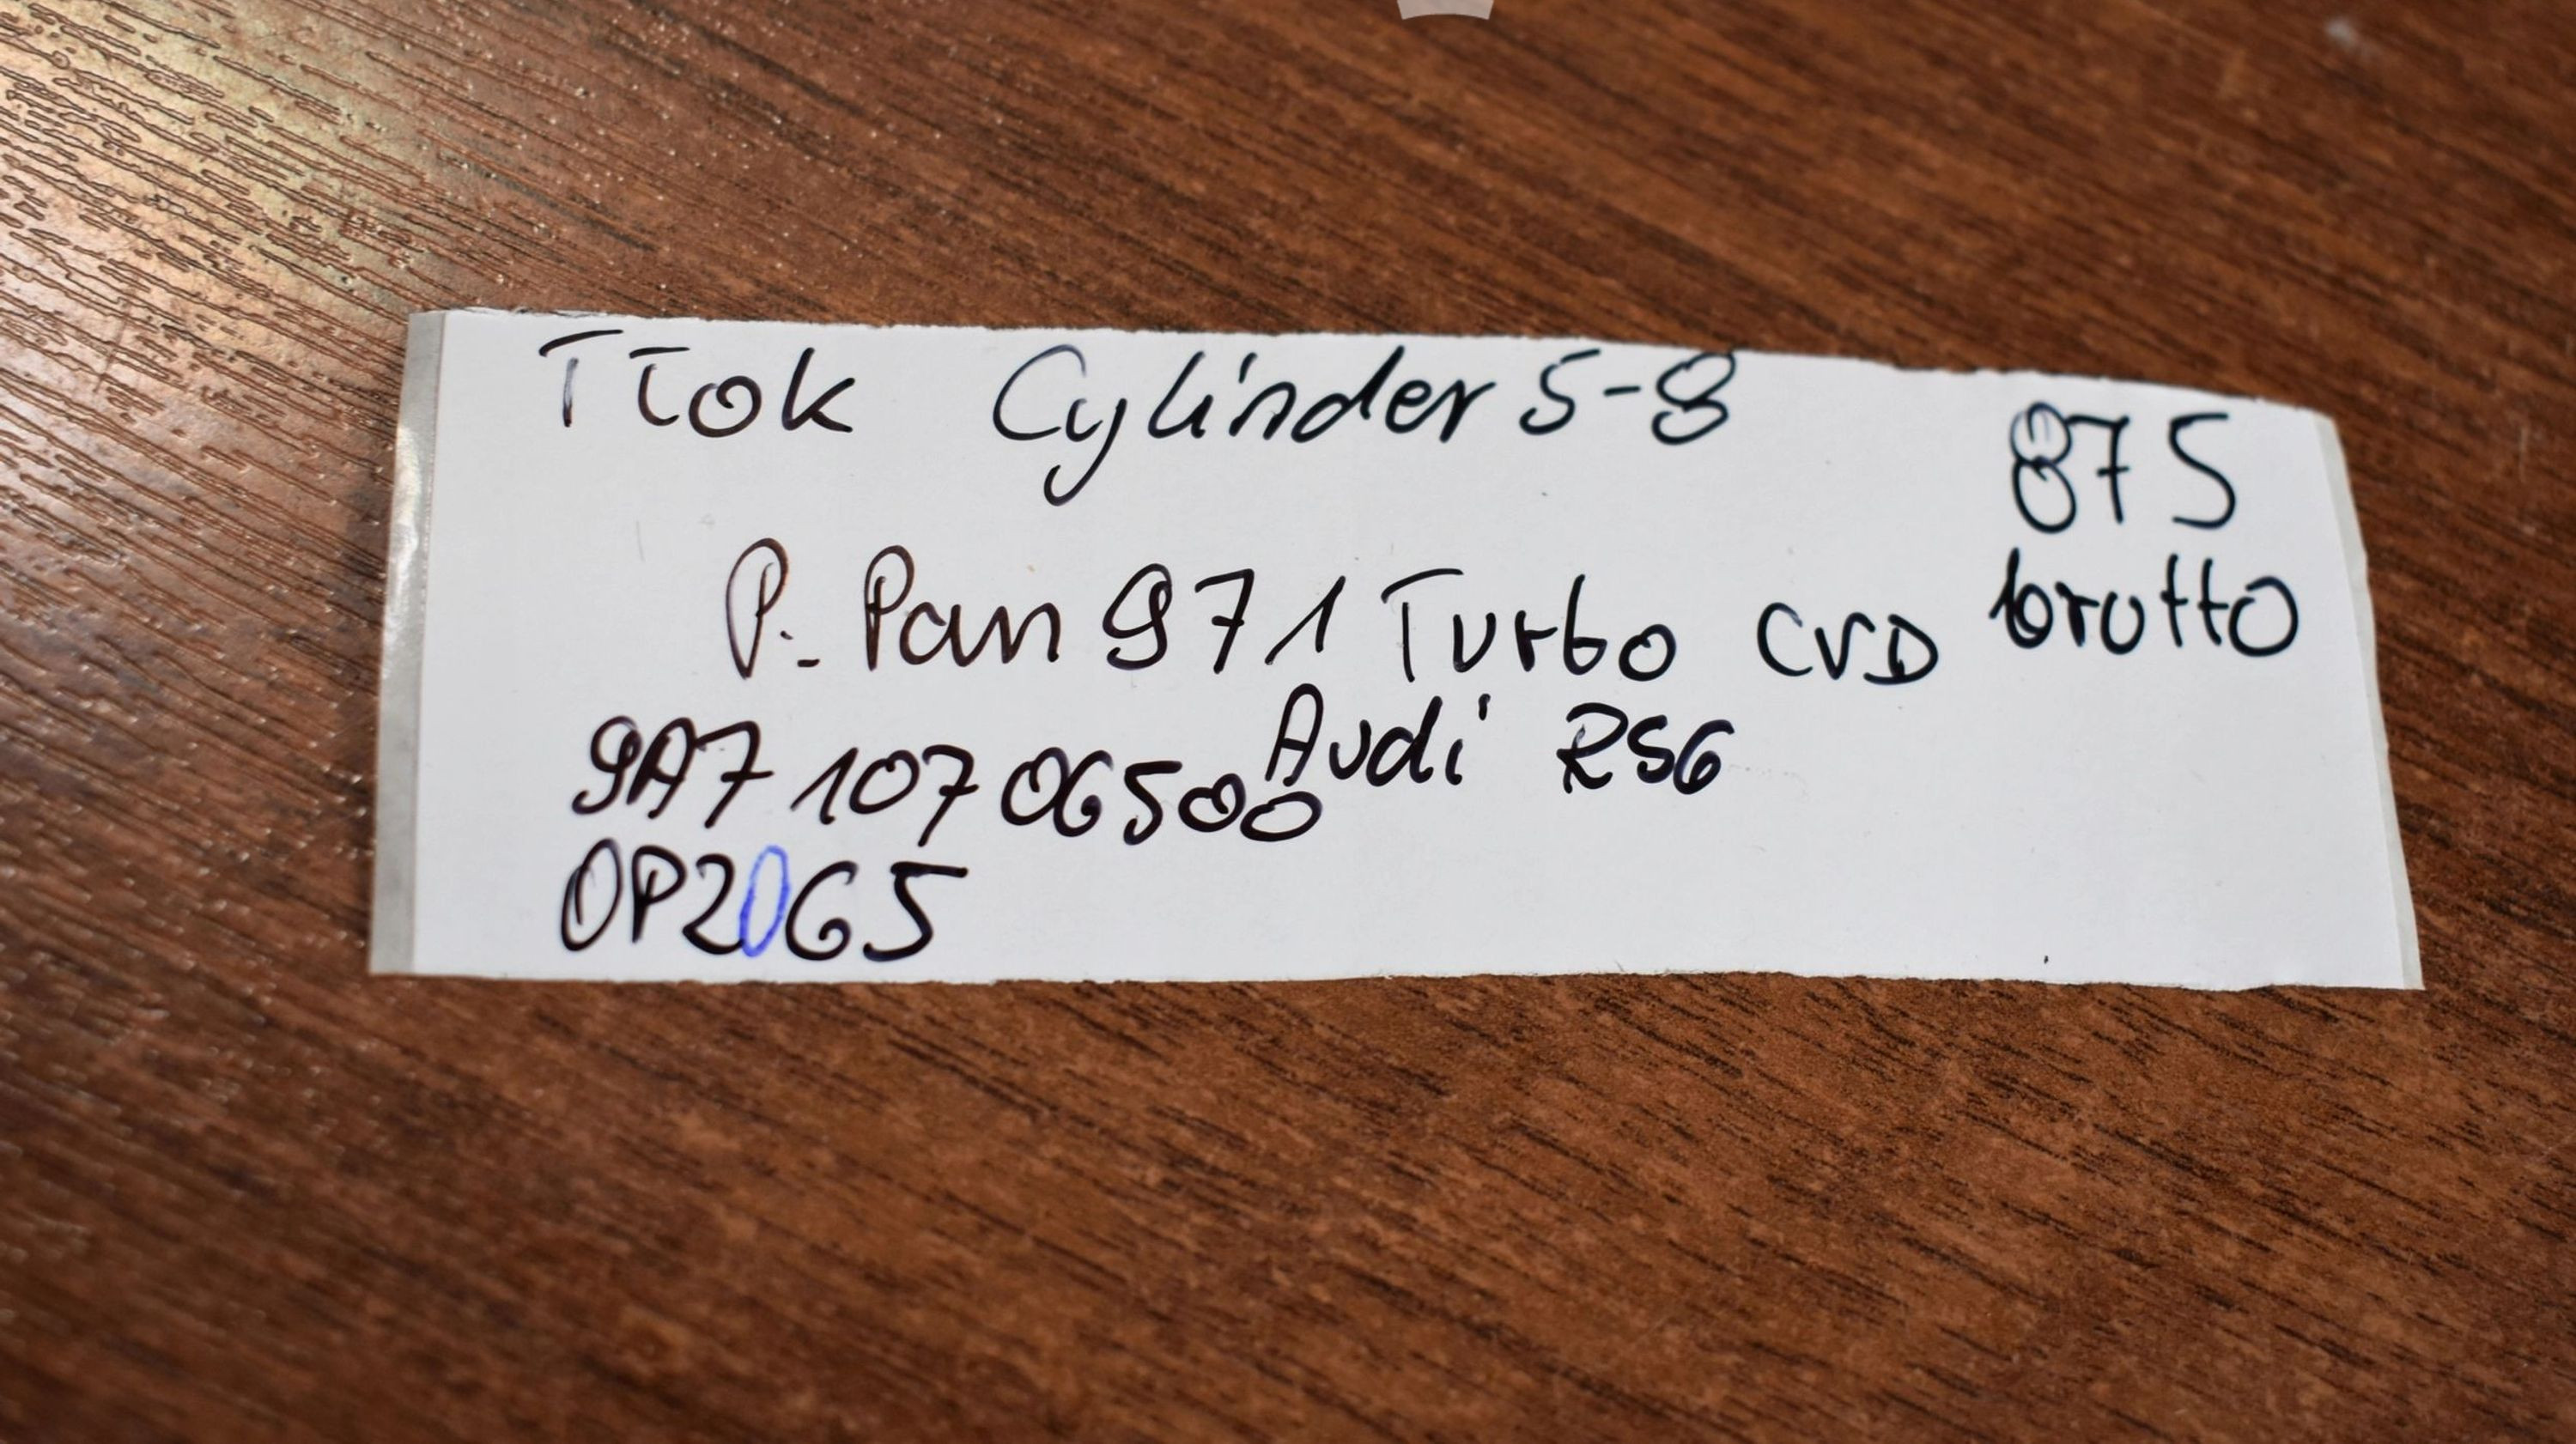 Tłok Cylinder 5-8
875
brutto
P. Pan 971 Turbo CVD
Audi RS6
9A7 107 06500
OP2065